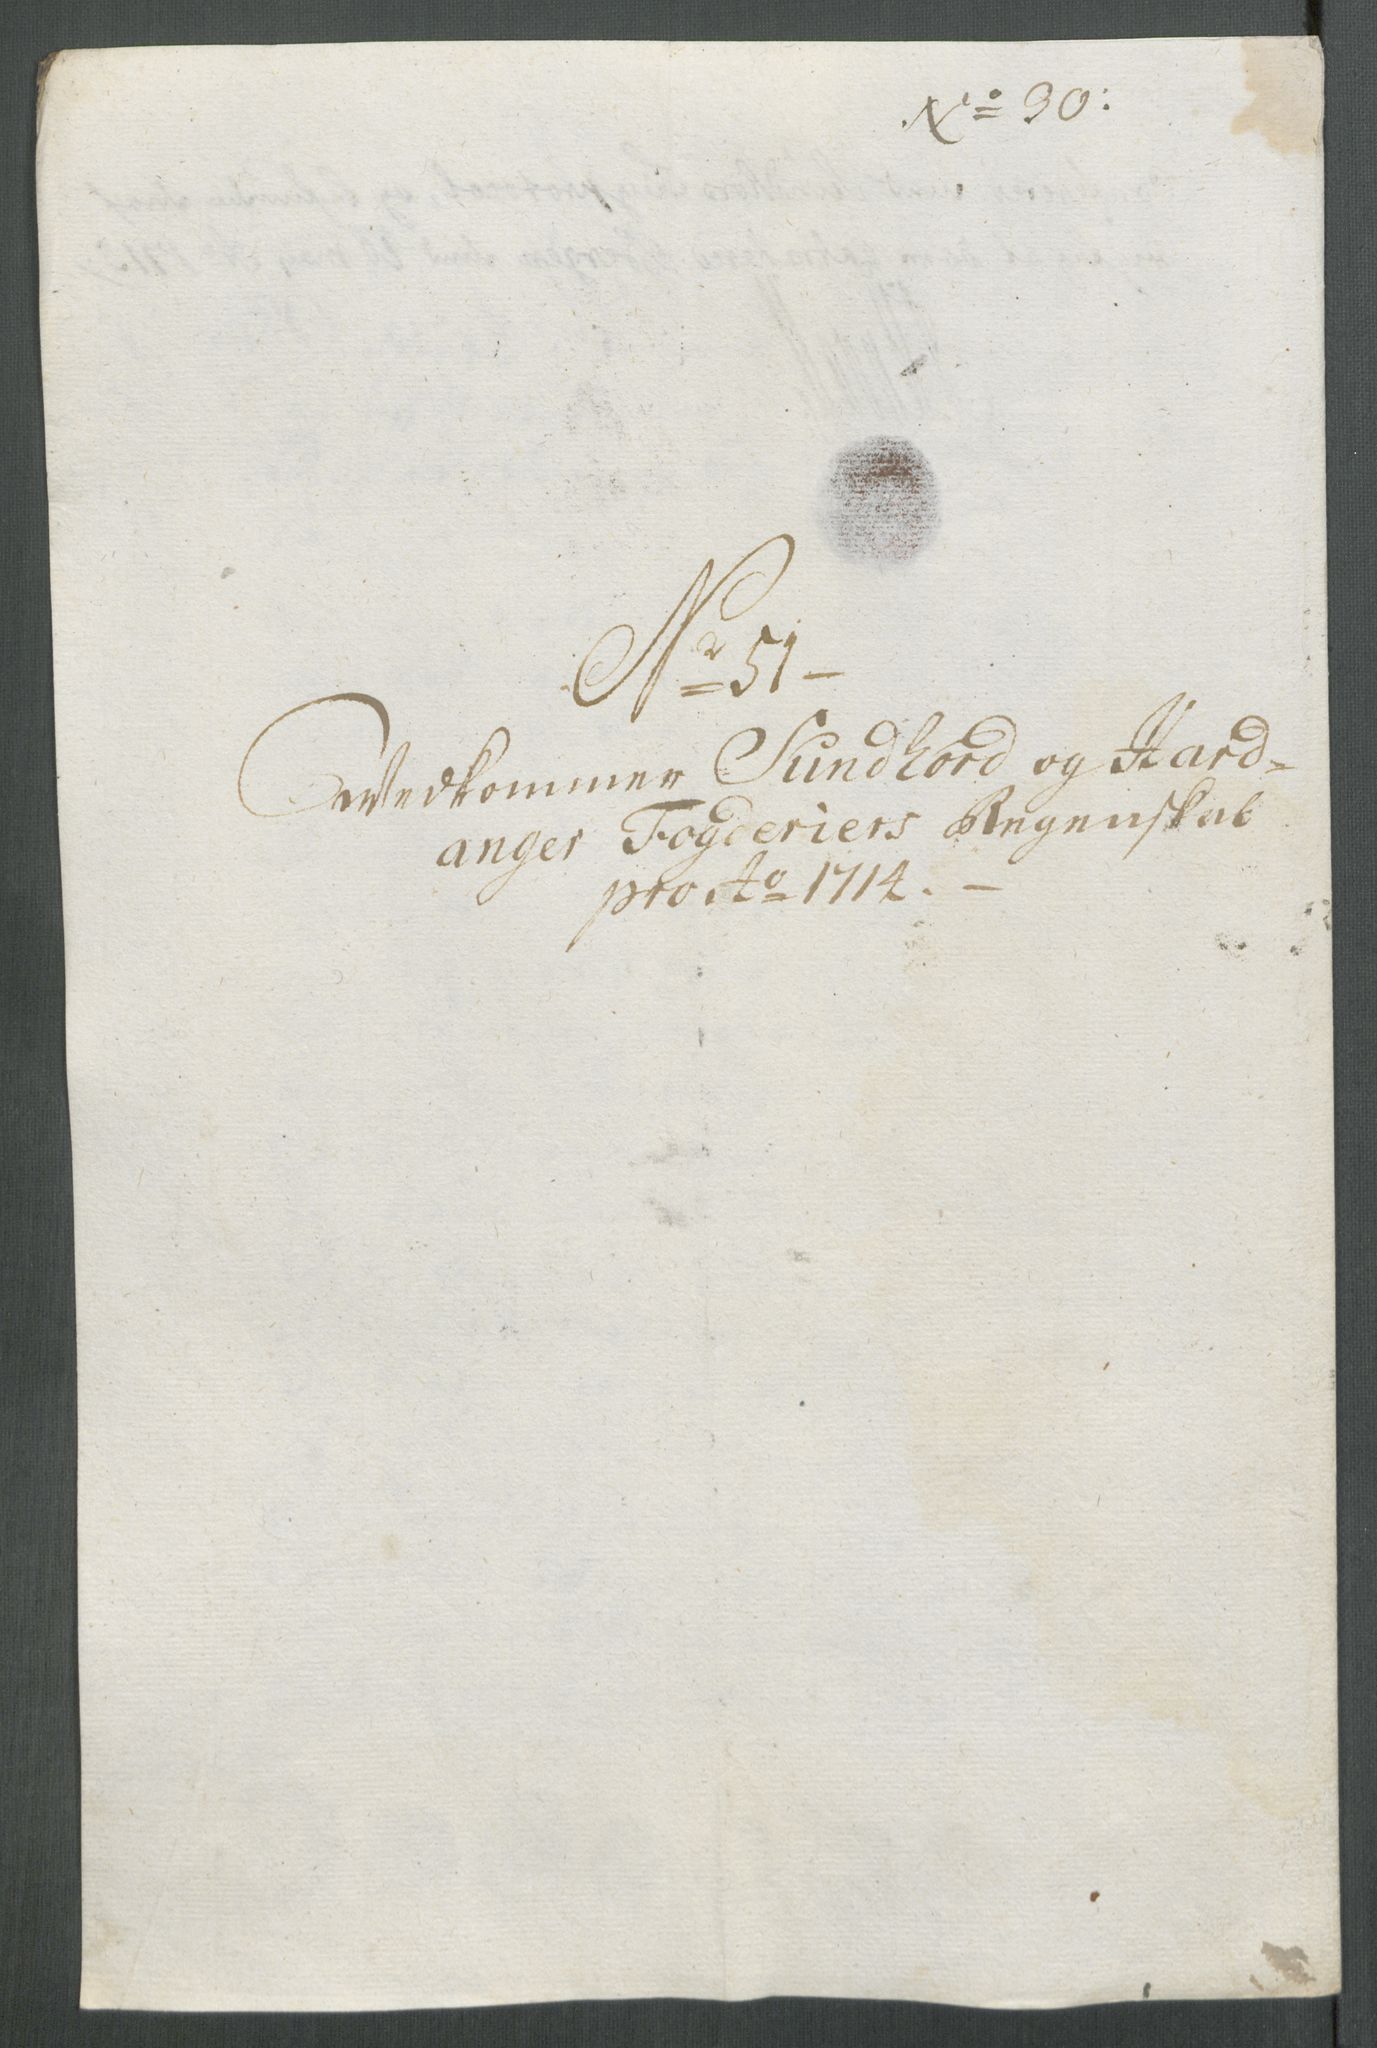 No 30:
Nr 51 –
Vedkommer Sundhord og Hard-
anger Fogderiers Regenskab
pro Ao 1714. –